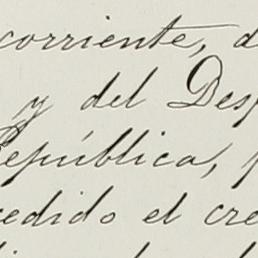 corriente, d
y del Des
República, p
cedido el cre